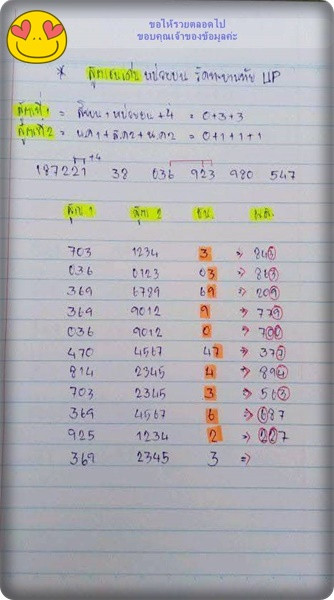 ขอให้รวยตลอดไป
ขอบคุณเจ้าของข้อมูลค่ะ
* สูตรเด่น หน่วยบน UP
สูตรที่ 1 = สิบบน + หน่วยบน + 4 = 0+3+3
สูตรที่ 2 = = 0+1+1+1
+4
187221 38 036 923 980 547
สูตร 1 สูตร 2
703 1234 3 => 843
036 0123 03 => 803
369 6789 69 => 209
369 9012 9 => 779
036 9012 0 => 700
470 4567 47 => 377
814 2345 4 => 894
703 2345 3 => 563
369 4567 6 => 687
925 1234 2 => 227
369 2345 3 =>